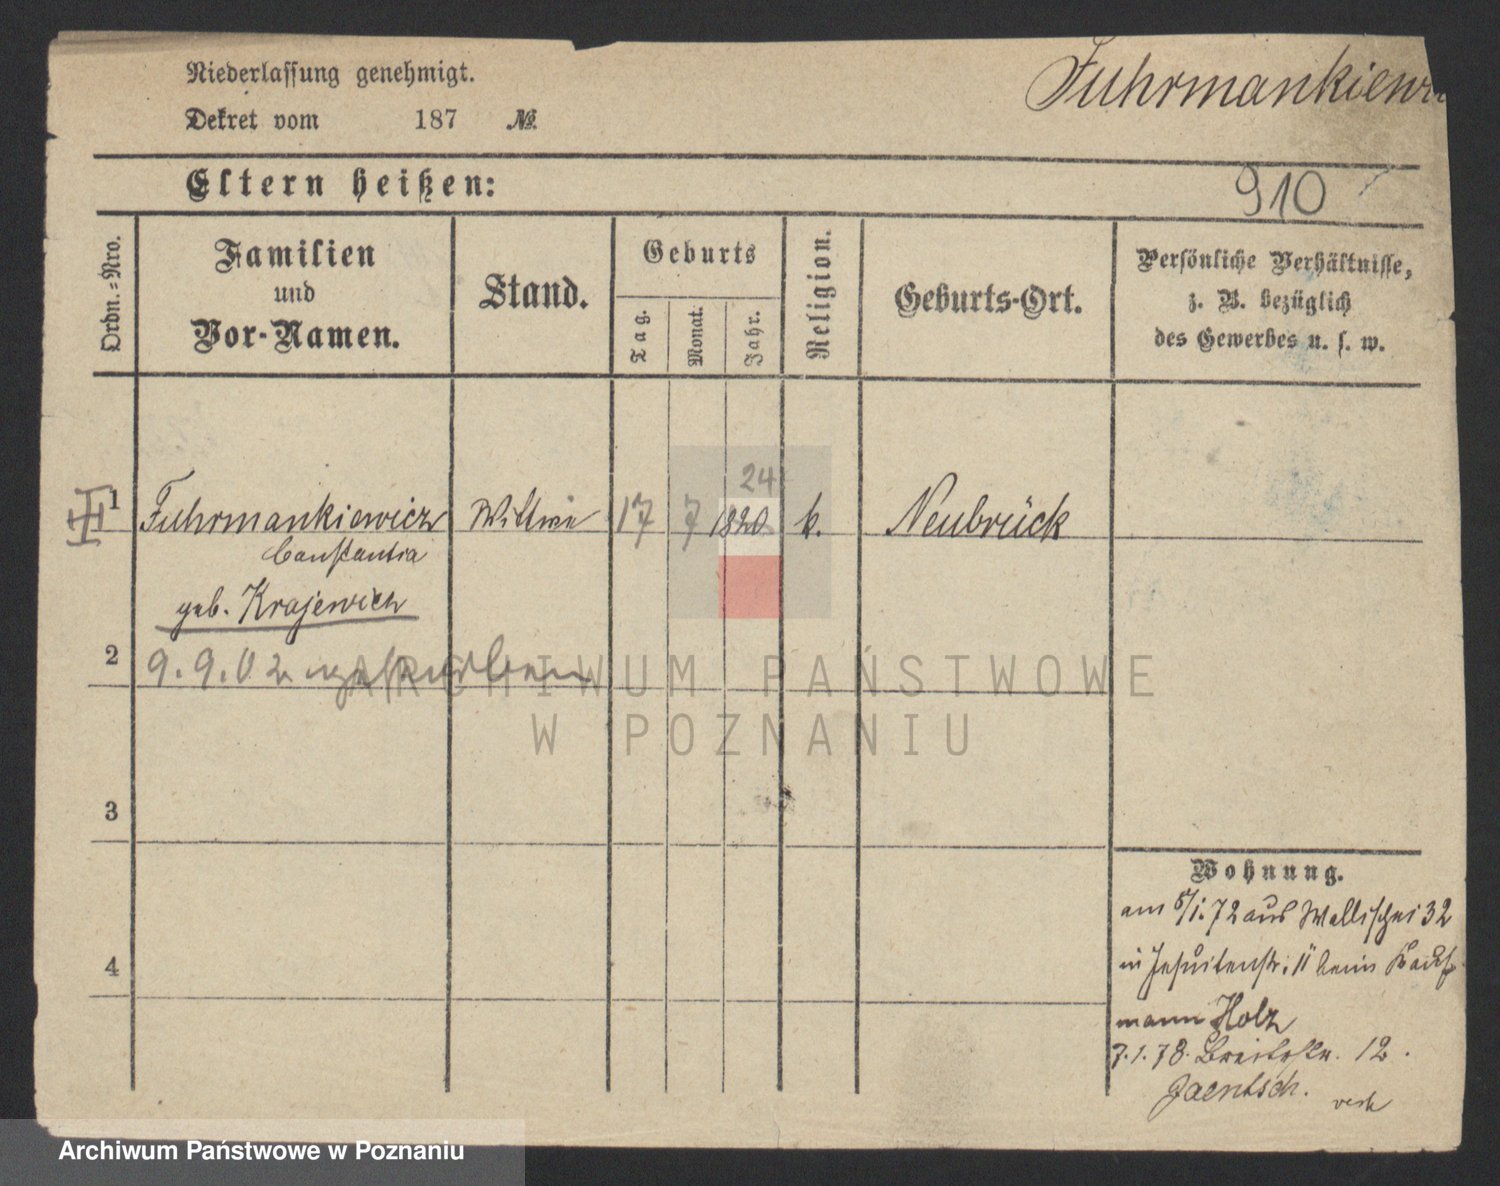 Niederlassung genehmigt.
Fuhrmankiewi
Dekret vom 187 №.
Eltern heißen:
910
Ordn.=Nro.
Familien
und
Vor-Namen.
Stand.
Geburts
Tag.
Monat.
Jahr.
Religion.
Geburts-Ort.
Persönliche Verhältnisse,
z. B. bezüglich
des Gewerbes u. s. w.
24
1 Fuhrmankiewicz Wittwe 17 7 1820 k. Neubrück
Constantia
geb. Krajewich
2 9.9.02 gestorben
ARCHIWUM PAŃSTWOWE
W POZNANIU
3
4
Wohnung.
am 5/1.72 aus Wallischei 32
in Jesuitenstr. 11 beim Kauf
mann Holz
7.1.78. Breitestr. 12.
Jaentsch.
Archiwum Państwowe w Poznaniu